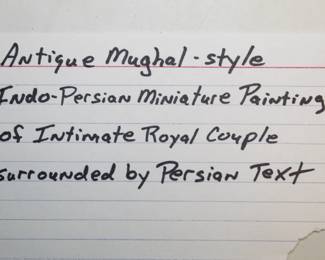 Antique Mughal-style
Indo-Persian Miniature Painting
of Intimate Royal Couple
surrounded by Persian Text